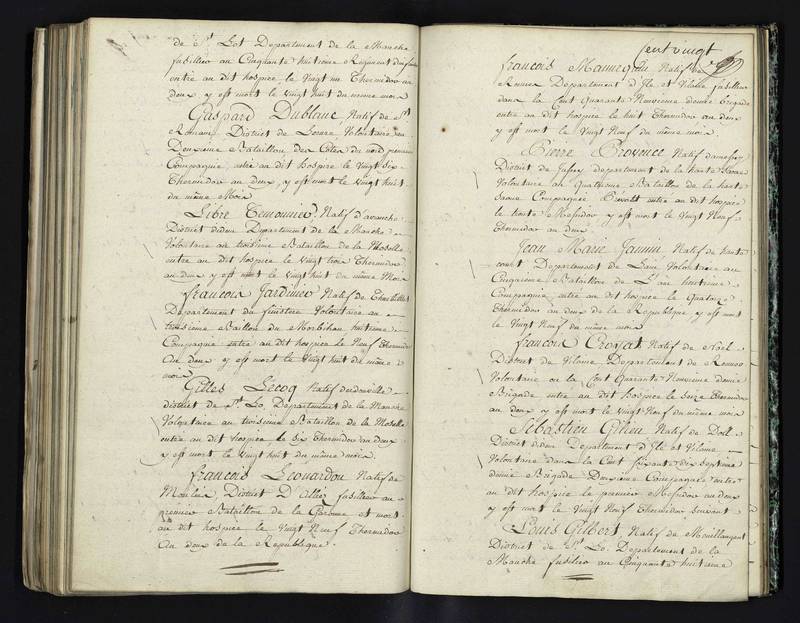 de St. Lot Departement de la Manche
fusillier au Cinquante huitieme Regiment
entré au dit hospice le vingt un Thermidor an
deux y est mort le vingt huit du même mois
Gaspard Dublanc, Natif de St.
Romain District de Volontaire au
Deuxieme Bataillon des Côtes du nord premiere
Compagnie entré au dit hospice le vingt six
Thermidor an deux, y est mort le vingt huit
du même Mois
Libre Natif d'avranche
District dudem Departement de la Manche
Volontaire au troisieme Bataillon de la Moselle
entré au dit hospice le vingt trois Thermidor
an deux y est mort le vingt huit du même Mois
francois Jardinier Natif de
Departement du finistere Volontaire au
troisieme Bataillon du Morbihan huitieme
Compagnie entré au dit hospice le Neuf Thermidor
An deux y est mort le vingt huit du même
mois
Gilles Lecoq Natif
district de St. Lo, Departement de la Manche
Volontaire au troisieme Bataillon de la Moselle
entré au dit hospice le six Thermidor an deux
y est mort le vingt huit du même mois.
francois Leouardon Natif de
Moulin, District D'allier fusillier au
premier Bataillon de la Garonne et mort
au dit hospice le vingt Neuf Thermidor
An deux de la Republique.
Cent vingt
francois Natif de
Rennes Departement d'Ile et Vilaine fusillier
dans la Cent Quarante Neuvieme demie Brigade
entré au dit hospice le huit Thermidor an deux
y est mort le Vingt Neuf du même mois
Pierre Provence Natif
District de Jussey departement de la haute Saone
Volontaire au Quatrieme Bataillon de la haute
Saone Compagnie entré au dit hospice
le Messidor y est mort le vingt Neuf
Thermidor an deux
Jean Marie Jannin Natif de haute
court Departement de L'ain Volontaire au
Cinquieme Bataillon de L'ain huitieme
Compagnie entré au dit hospice le Quatorze
Thermidor an deux de la Republique y est mort
le Vingt Neuf du même mois
francois Crovat Natif de Noël
District de Vilaine Departement de Rennes
Volontaire en la Cent Quarante Neuvieme demie
Brigade entré au dit hospice le Seize Thermidor
an deux y est mort le vingt Neuf du même mois
Sebastien Gilieu Natif de Doll
District dudem Departement d'Ile et Vilaine
Volontaire dans la Cent soixante dix septieme
demie Brigade Deuxieme Compagnie entré
au dit hospice le premier Messidor an deux
y est mort le vingt Neuf Thermidor suivant
Louis Gilbert Natif de
District de St. Lo. Departement de la
Manche fusillier au Cinquante huitieme